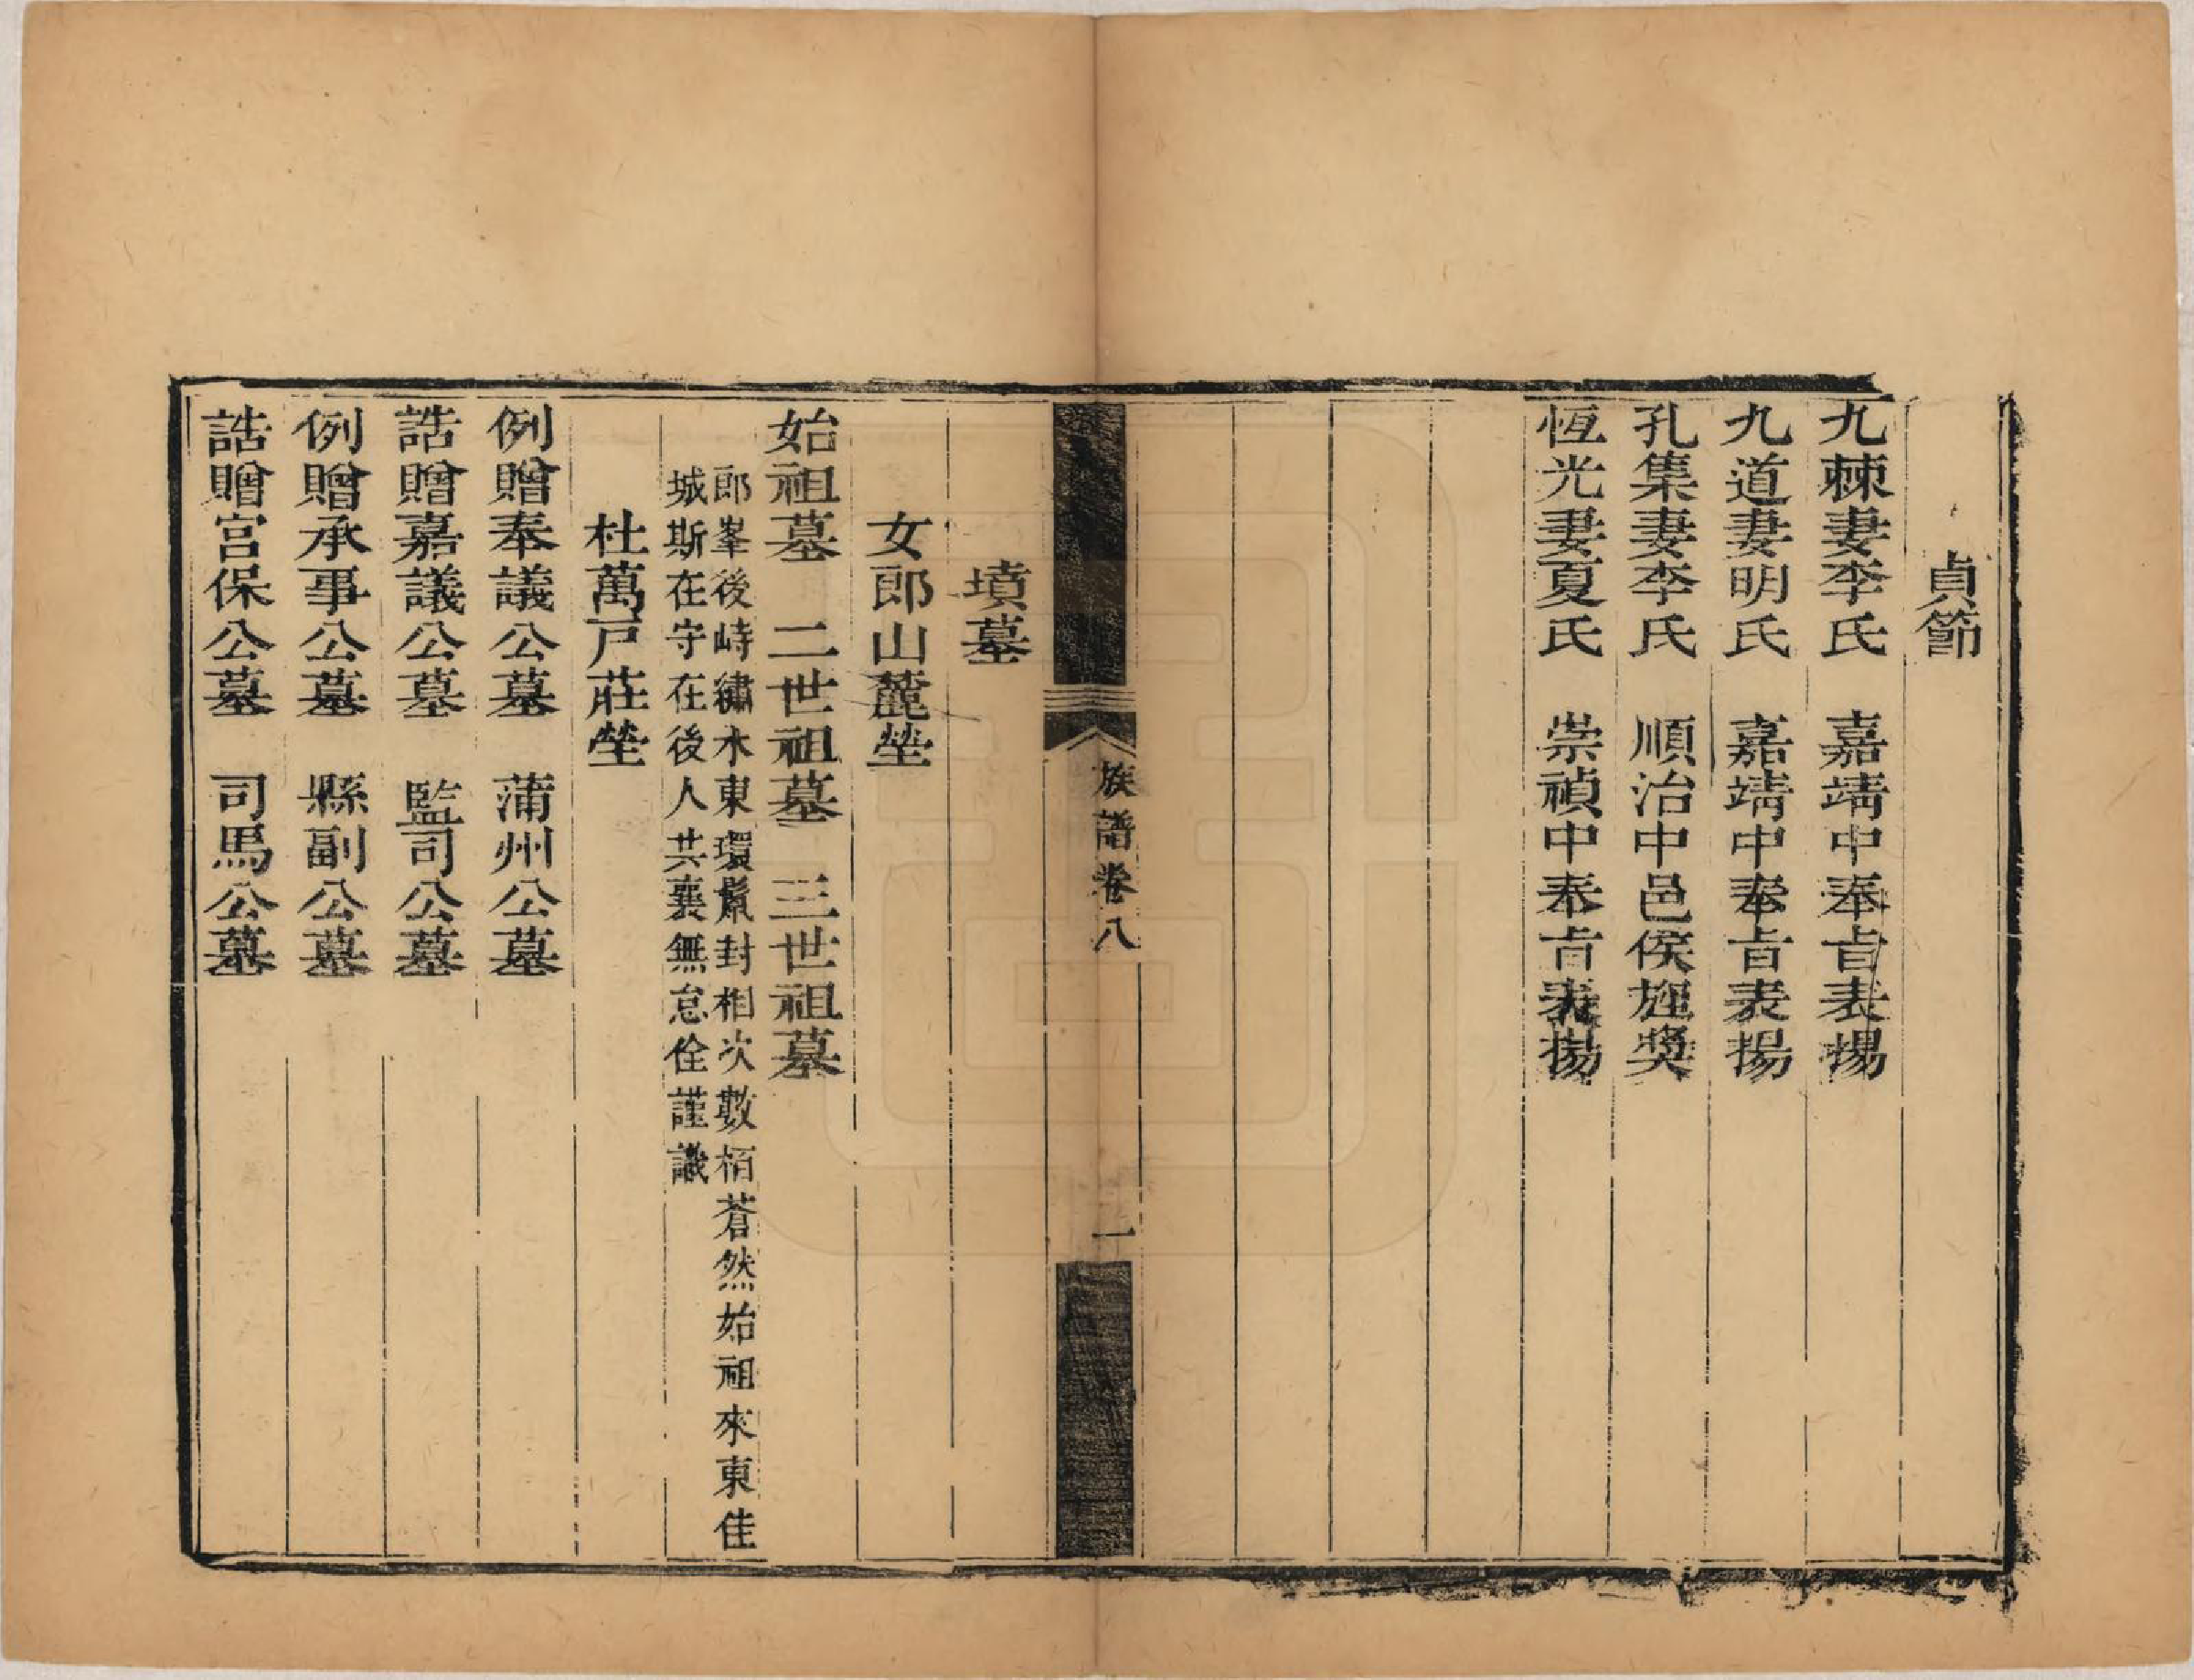 貞節
九棘妻李氏　嘉靖中奉㫖表揚
九道妻明氏　嘉靖中奉㫖表揚
孔集妻李氏　順治中邑侯旌獎
恆光妻夏氏　崇禎中奉㫖表揚
族譜卷八　一
墳墓
女郎山麓塋
始祖墓　二世祖墓　三世祖墓
郎峯後峙繡水東環鬣封相次數栢蒼然始祖來東佳
城斯在守在後人共襄無怠佺謹議
杜萬戸莊塋
例贈奉議公墓　蒲州公墓
誥贈嘉議公墓　監司公墓
例贈承事公墓　縣副公墓
誥贈宮保公墓　司馬公墓